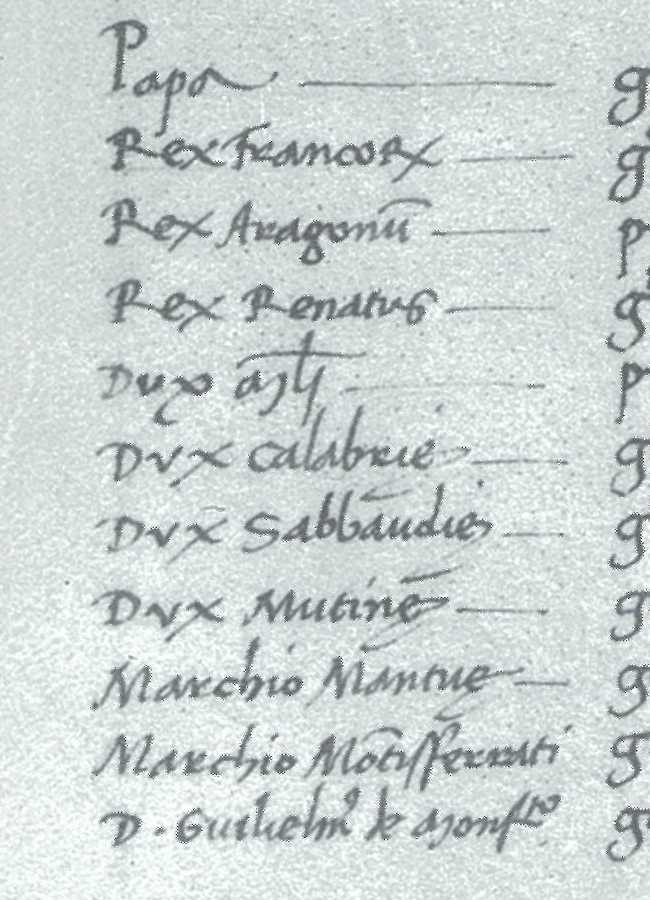 Papa g
Rex Francorꝝ g
Rex Aragonū p
Rex Renatus g
Dux p
Dux Calabrie g
Dux Sabbaudie g
Dux Mutine g
Marchio Mantue g
Marchio Mōtisferrati g
D. Guilielmꝰ de Monfto g